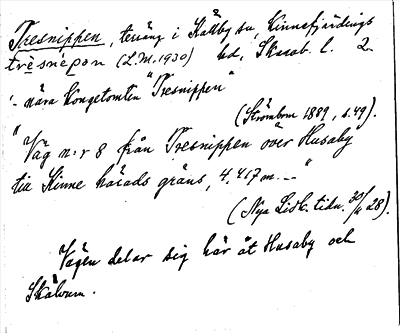 Tresnippen, terräng i Källby sn, Kinnefjärdings
trèsnépon (L.M. 1930) hd, Skarab. l. 2.
"- nära Kongetomten "Tresnippen"
(Strömbom 1889, s. 49).
"Väg n:r 8 från Tresnippen över Husaby
till Kinne härads gräns, 4,417 m. –– "
(Nya Lidk. tidn. 30/11 28).
Vägen delar sig här åt Husaby och
Skälvum.